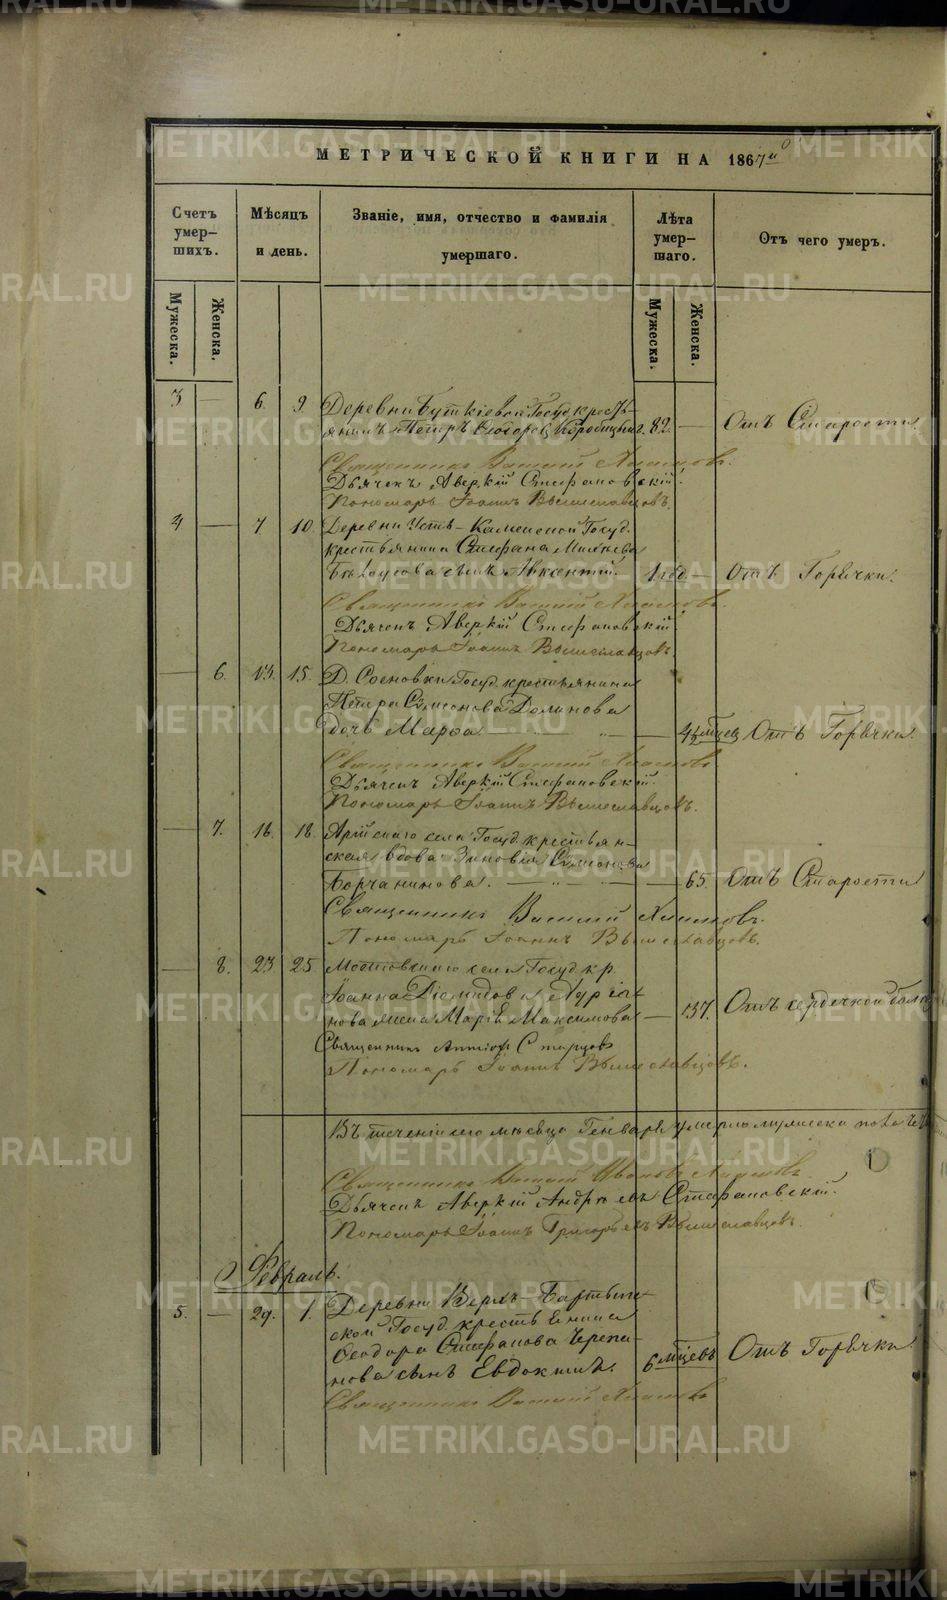 МЕТРИЧЕСКОЙ КНИГИ НА 1867й
Счетъ умер-шихъ.
Мѣсяцъ и день.
Званіе, имя, отчество и фамилія умершаго.
Лѣта умер-шаго.
Отъ чего умеръ.
Мужеска.
Женска.
Мужеска.
Женска.
3 — 6. 9. Деревни Госуд. кресть-
янинъ Петръ 82. — Отъ Старости
Священникъ Василій
Дьячекъ Аверкій Стефановскій.
Пономарь Іоаннъ Вышеславцовъ.
4 — 7 10. Деревни Усть-Каменской Госуд.
крестьянина Стефана
Бѣлоусова сынъ Авксентій. 1 год. — Отъ Горячки.
Священникъ Василій
Дьячекъ Аверкій Стефановскій
Пономарь Іоаннъ Вышеславцовъ.
— 6. 13. 15. Д. Сосновки Госуд. крестьянина
Петра Симеонова
дочь Марѳа — мѣсяцев Отъ Горячки.
Священникъ Василій
Дьячекъ Аверкій Стефановскій.
Пономарь Іоаннъ Вышеславцовъ.
— 7. 16. 18. Арійскаго села Госуд. крестьян-
ская вдова Зиновія Симеонова
Борчанинова. — 65. Отъ Старости
Священникъ Василій
Пономарь Іоаннъ Вышеславцовъ.
— 8. 23 25 села Госуд. кр.
Іоанна Діомидова
нова жена Марія Максимова — 37. Отъ сердечной
Священникъ Старцовъ
Пономарь Іоаннъ Вышеславцовъ.
Въ теченіи сего мѣсяца Генваря умерло мужеска пола
Священникъ Василій
Дьячекъ Аверкій Андреевъ Стефановскій.
Пономарь Іоаннъ Григорьевъ Вышеславцовъ.
Февраль.
5. — 29. 1. Деревни Верхъ-
ской Госуд. крестьянина
Ѳеодора Стефанова Черепа-
нова сынъ Евдокимъ. 6 мѣсяцевъ Отъ Горячки.
Священникъ Василій
METRIKI.GASO-URAL.RU